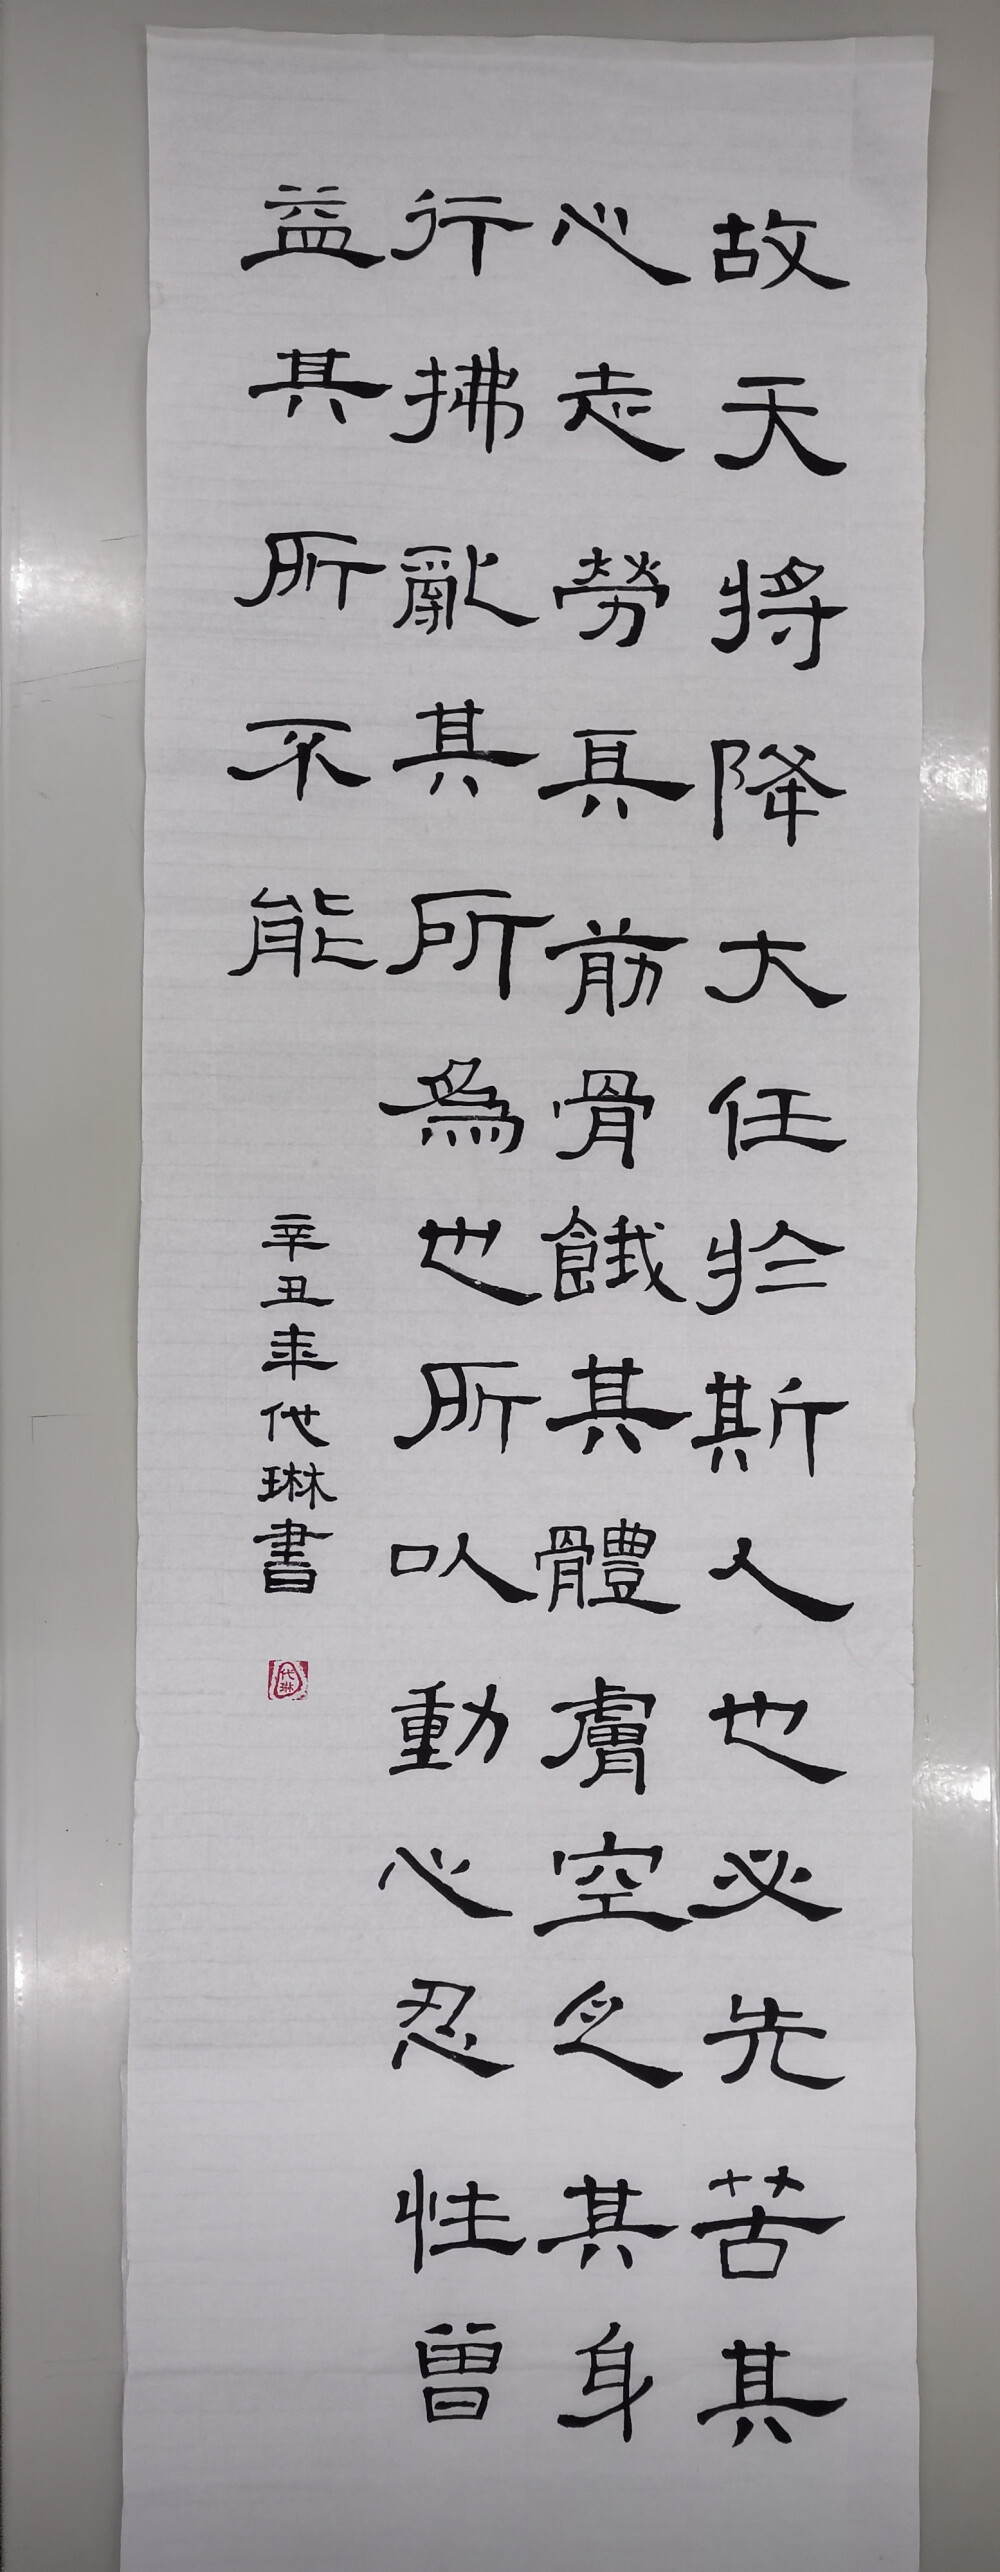 故天将降大任於斯人也必先苦其
心志勞其筋骨餓其體膚空乏其身
行拂亂其所為也所以動心忍性曾
益其所不能
辛丑年代琳書
代琳